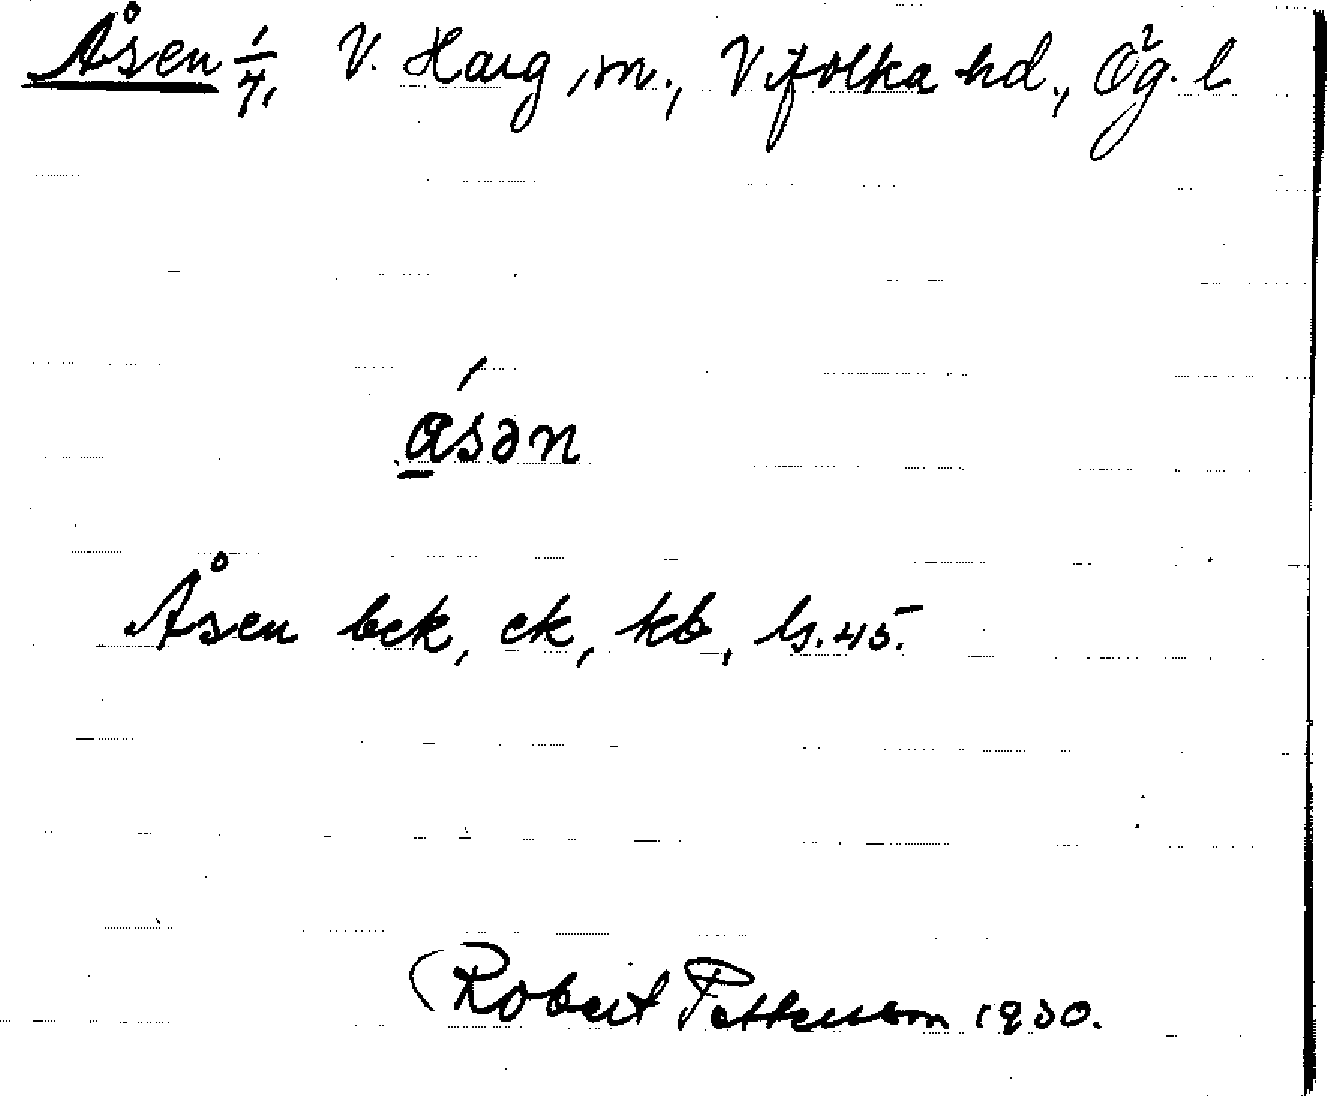 Åsen 1/7, V. Harg, m., Vifolka hd., Ög. l
åsən
Åsen bck, ck, kb, ls. 45.
Robert Pettersson 1930.